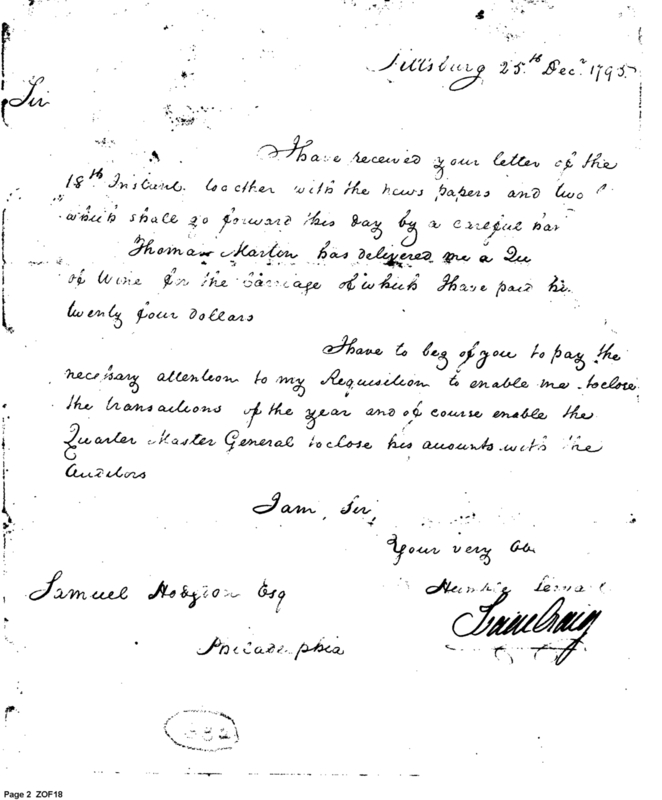 Pittsburg 25th Decr 1795
Sir
I have received your letter of the
18th Instant together with the news papers and two
which shall go forward this day by a careful han
Thomas Martin has delivered me a Qu
of Wine for the Carriage of which I have paid hi
twenty four dollars
I have to beg of you to pay the
necessary attention to my Requisition to enable me to close
the transactions of the year and of course enable the
Quarter Master General to close his acounts with the
Auditors
I am, Sir,
Your very Ob
Humble Serva
Isaac Craig
Samuel Hodgson Esq
Philadelphia
Page 2 ZOF18